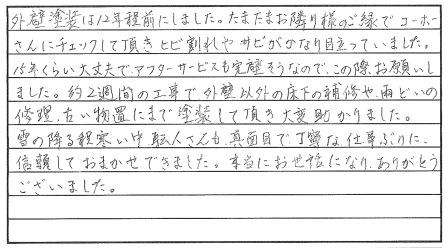 外壁塗装は12年程前にしました。たまたまお隣り様のご縁でコーホー
さんにチェックして頂きヒビ割れやサビがかなり目立っていました。
15年くらい大丈夫で、アフターサービスも完璧そうなので、この際お願いし
ました。約2週間の工事で外壁以外の床下の補修や、雨どいの
修理、古い物置にまで塗装して頂き大変助かりました。
雪の降る程寒い中、職人さんも真面目で丁寧な仕事ぶりに、
信頼しておまかせできました。本当にお世話になり、ありがとう
ございました。